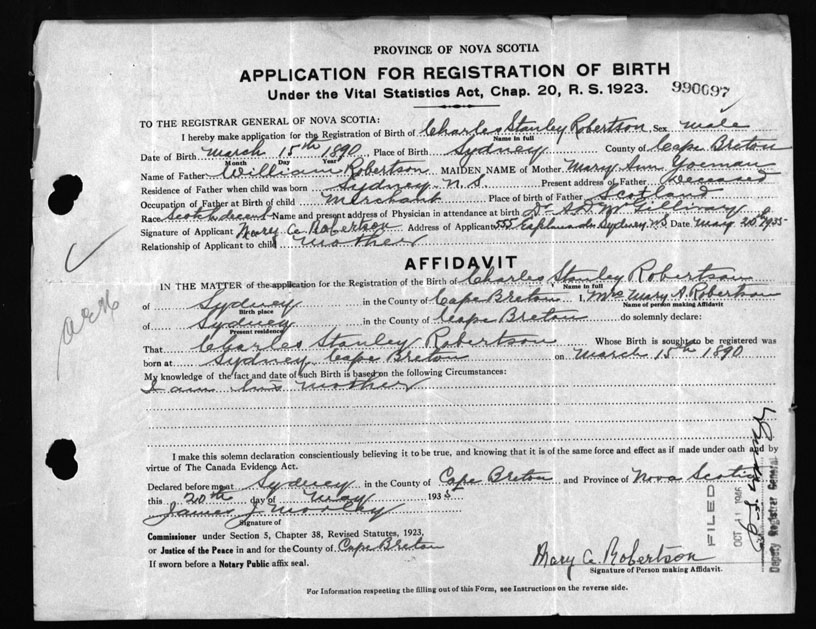 PROVINCE OF NOVA SCOTIA
APPLICATION FOR REGISTRATION OF BIRTH
Under the Vital Statistics Act, Chap. 20, R. S. 1923.
990697
TO THE REGISTRAR GENERAL OF NOVA SCOTIA:
I hereby make application for the Registration of Birth of Charles Stanley Robertson Sex male
Name in full
Date of Birth March 15th 1890 Place of Birth Sydney County of Cape Breton
Month Day Year
Name of Father William Robertson MAIDEN NAME of Mother Mary Ann Yoeman
Residence of Father when child was born Sydney N.S. Present address of Father Deceased
Occupation of Father at Birth of child Merchant Place of birth of Father Scotland
Race Scotch decent Name and present address of Physician in attendance at birth Dr
Signature of Applicant Mary A Robertson Address of Applicant 55 Esplanade Sydney, N.S Date May 20th 1935
Relationship of Applicant to child Mother
AFFIDAVIT
IN THE MATTER of the application for the Registration of the Birth of Charles Stanley Robertson
Name in full
of Sydney in the County of Cape Breton I, Mrs Mary A Robertson
Birth place Name of person making Affidavit
of Sydney in the County of Cape Breton do solemnly declare:
Present residence
That Charles Stanley Robertson Whose Birth is sought to be registered was
born at Sydney Cape Breton on March 15th 1890
My knowledge of the fact and date of such Birth is based on the following Circumstances:
I am his mother
I make this solemn declaration conscientiously believing it to be true, and knowing that it is of the same force and effect as if made under oath and by
virtue of The Canada Evidence Act.
Declared before me at Sydney in the County of Cape Breton and Province of Nova Scotia
this 20th day of May 1935
James J
Signature of
Commissioner under Section 5, Chapter 38, Revised Statutes, 1923,
or Justice of the Peace in and for the County of Cape Breton
If sworn before a Notary Public affix seal.
Mary A. Robertson
Signature of Person making Affidavit.
FILED
OCT 1 1946
Deputy Registrar General
For Information respecting the filling out of this Form, see Instructions on the reverse side.